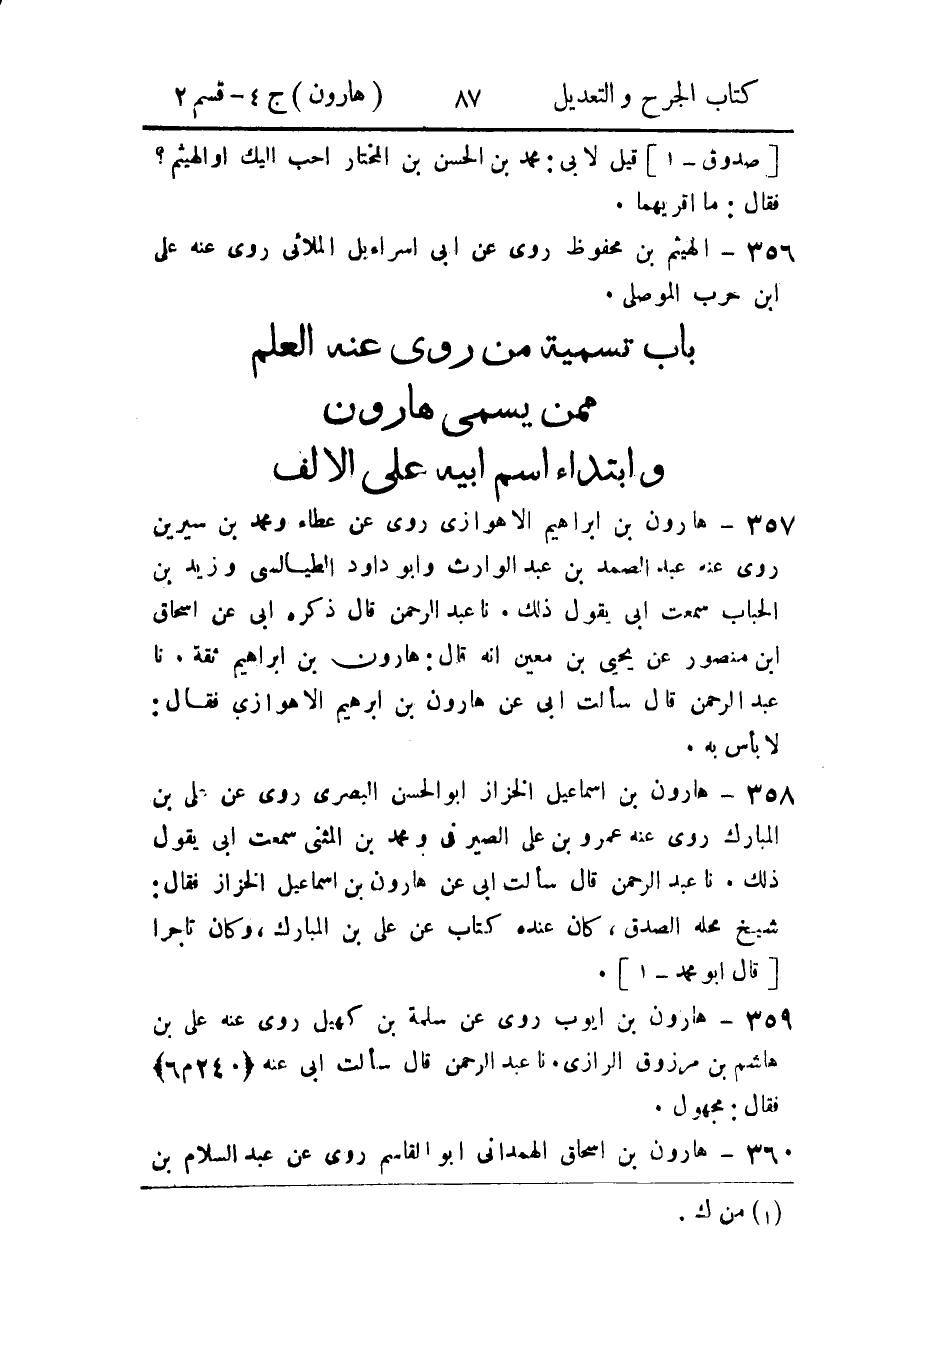 كتاب الجرح والتعديل ٨٧ (هارون) ج ٤ - قسم ٢
[صدوق - ١] قيل لابي: محمد بن الحسن بن المختار احب اليك او الهيثم؟
فقال: ما اقربهما.
٣٥٦ - الهيثم بن محفوظ روى عن ابى اسراءيل الملائى روى عنه على
ابن حرب الموصلى.
باب تسمية من روى عنه العلم
ممن يسمى هارون
وابتداء اسم ابيه على الالف
٣٥٧ - هارون بن ابراهيم الاهوازى روى عن عطاء ومحمد بن سيرين
روى عنه عبد الصمد بن عبد الوارث وابو داود الطيالسى وزيد بن
الحباب سمعت ابى يقول ذلك. نا عبد الرحمن قال ذكره ابى عن اسحاق
ابن منصور عن يحيى بن معين انه قال: هارون بن ابراهيم ثقة. نا
عبد الرحمن قال سألت ابى عن هارون بن ابرهيم الاهوازي فقال:
لا بأس به.
٣٥٨ - هارون بن اسماعيل الخزاز ابو الحسن البصرى روى عن على بن
المبارك روى عنه عمرو بن على الصيرفى ومحمد بن المثنى سمعت ابى يقول
ذلك. نا عبد الرحمن قال سألت ابى عن هارون بن اسماعيل الخزاز فقال:
شيخ محله الصدق، كان عنده كتاب عن على بن المبارك، وكان تاجرا
[قال ابو محمد - ١].
٣٥٩ - هارون بن ايوب روى عن سلمة بن كهيل روى عنه على بن
هاشم بن مرزوق الرازى. نا عبد الرحمن قال سألت ابى عنه ﴿٢٤٠م٦﴾
فقال: مجهول.
٣٦٠ - هارون بن اسحاق الهمدانى ابو القاسم روى عن عبد السلام بن
(١) من ك.